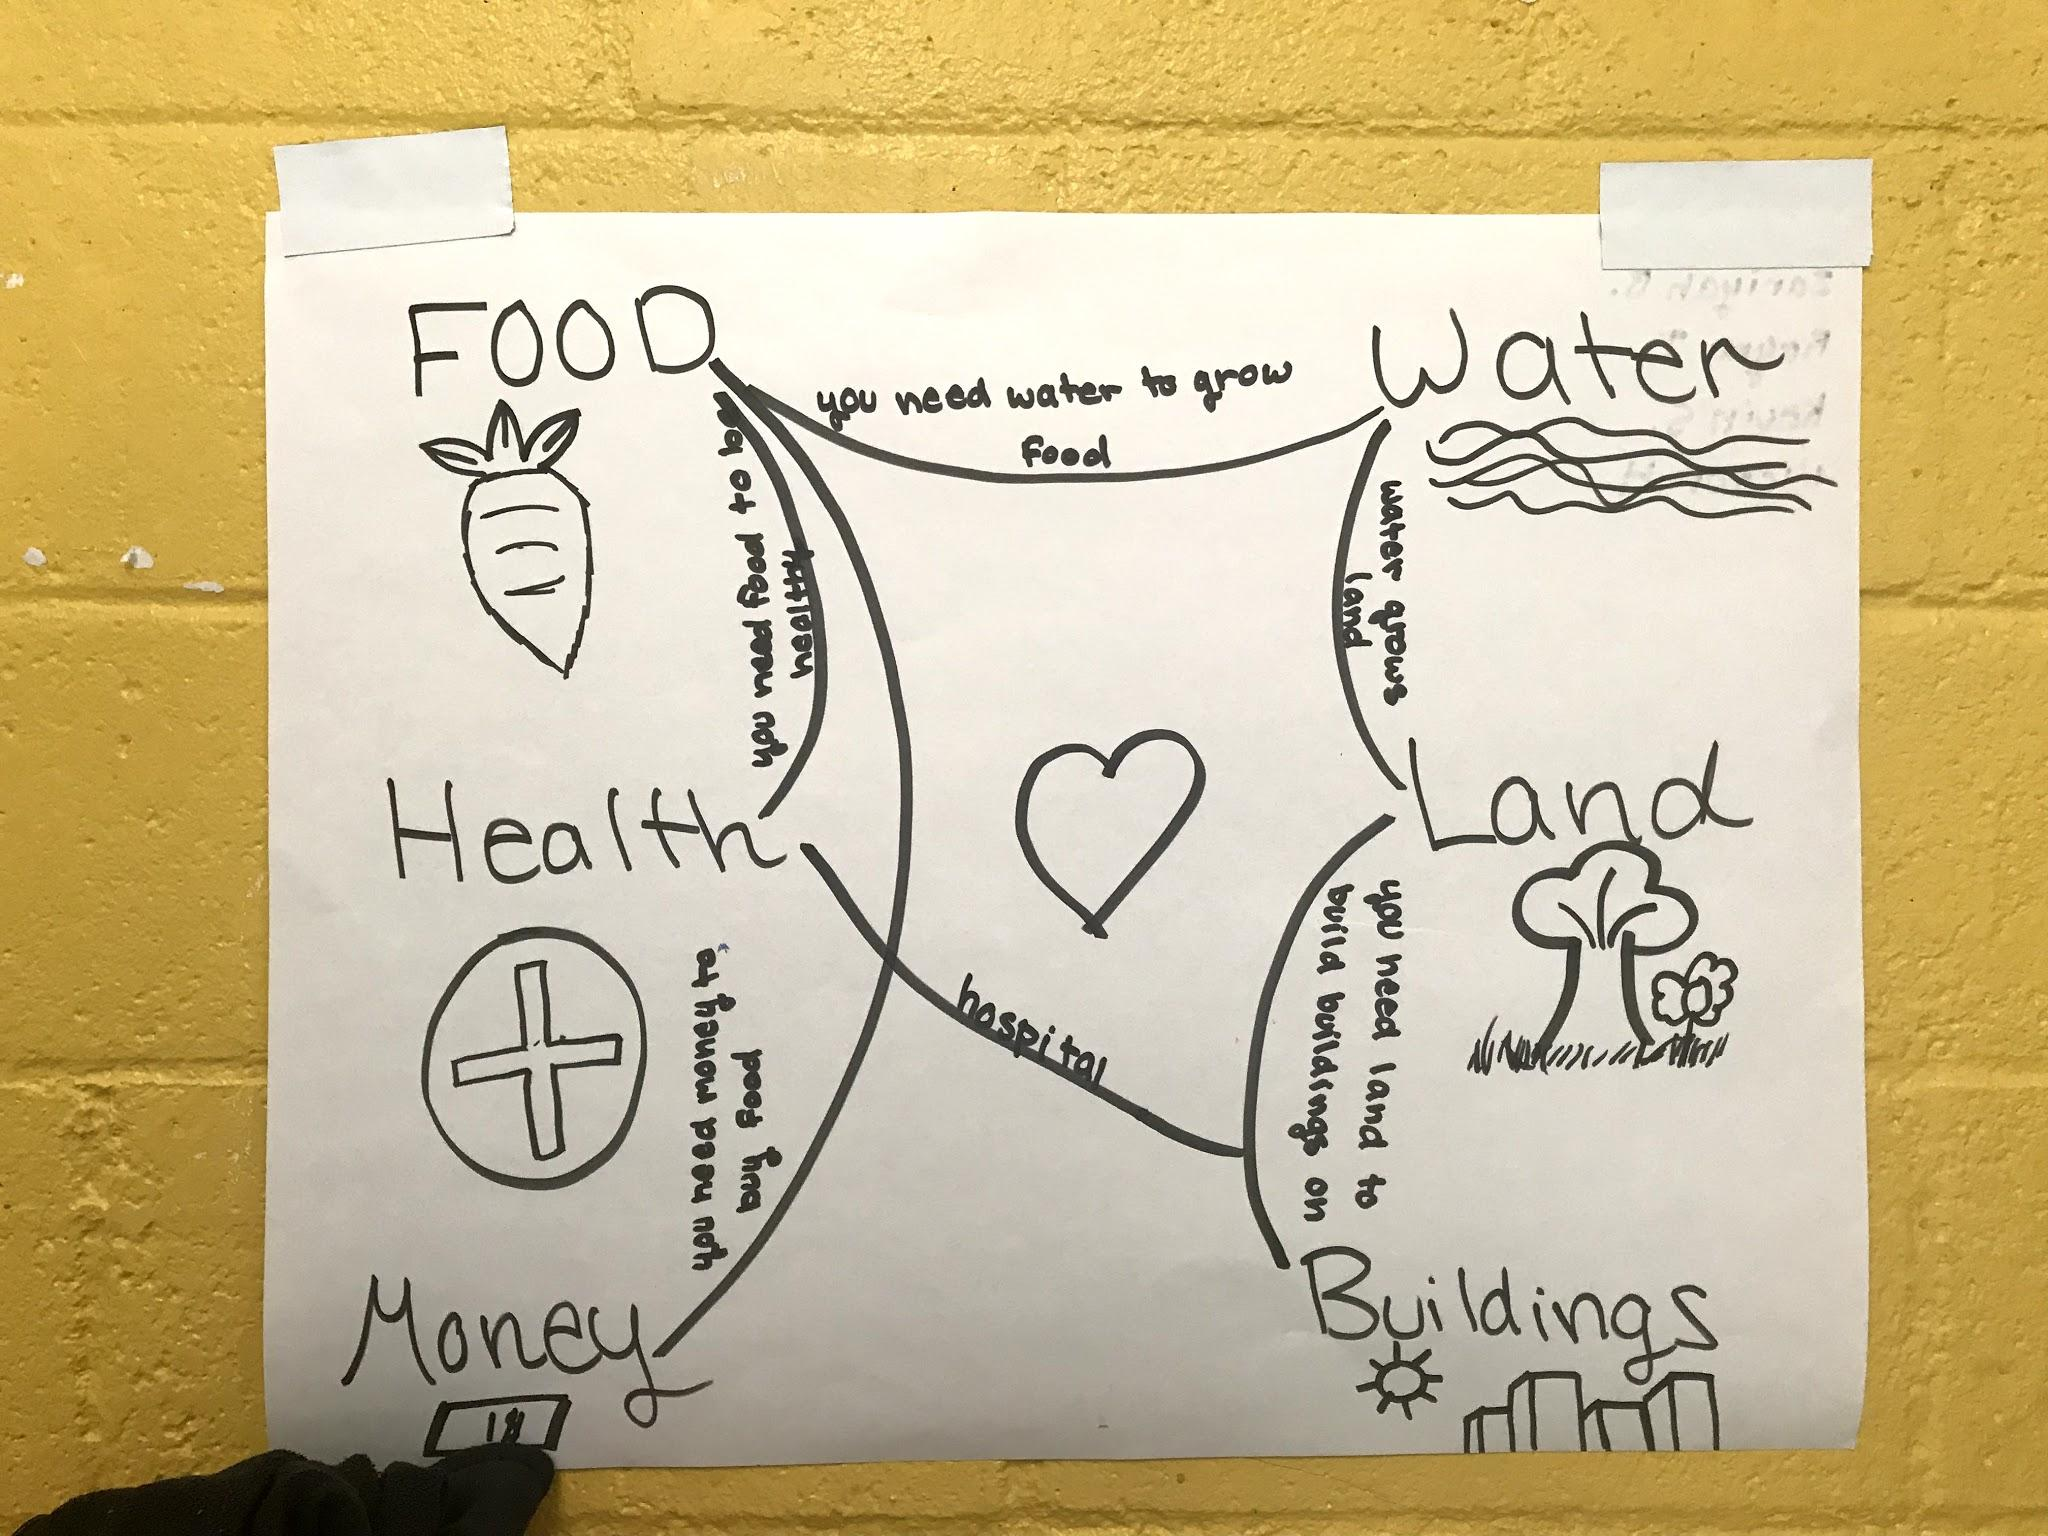 FOOD
Water
you need water to grow
food
you need food to be
healthy
water grows
land
Health
Land
hospital
you need money to
buy food
you need land to
build buildings on
Money
Buildings